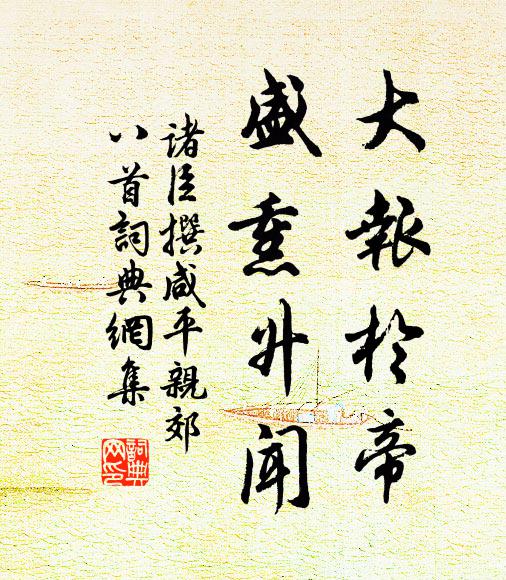 大報於帝
盛熏升聞
諸臣撰咸平親郊
八首詞典網集
詞典网印